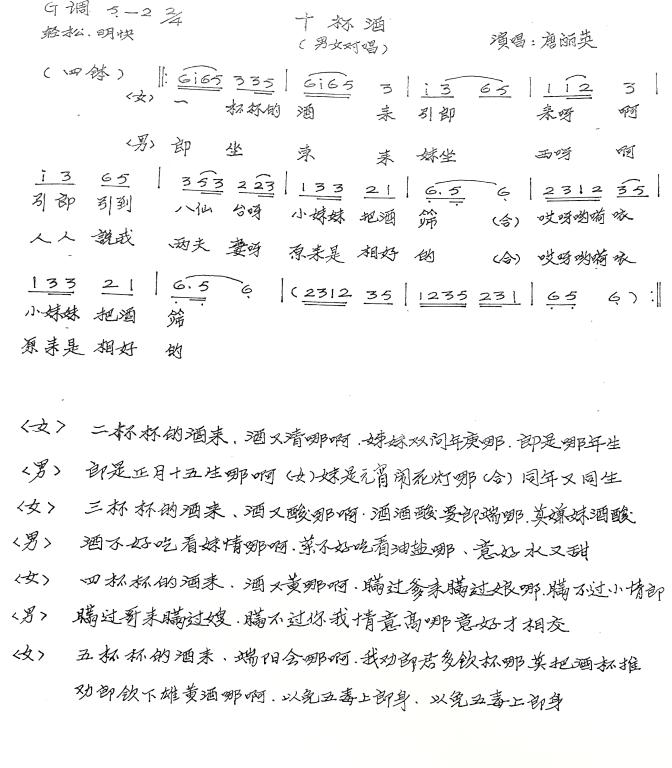 G调 5—2 2/4
十杯酒
轻松.明快
(男女对唱)
演唱:唐丽英
(四体) ‖: 6i65 335 | 6i65 3 | i3 65 | 1i2 3 |
<女> 一 杯杯的 酒 来 引郎 来呀 啊
<男> 郎 坐 东 来 妹坐 西呀 啊
i3 65 | 353 223 | 133 21 | 6.5 6 | 2312 35 |
引郎 引到 八仙 台呀 小妹妹 把酒 筛 (合) 哎呀哟嗬 衣
人人 說我 两夫 妻呀 原来是 相好 的 (合) 哎呀哟嗬 衣
133 21 | 6.5 6 | (2312 35 | 1235 231 | 65 6) :‖
小妹妹 把酒 筛
原来是 相好 的
<女> 二杯杯的酒来.酒又清哪啊.妹妹双问年庚哪.郎是哪年生
<男> 郎是正月十五生哪啊(女)妹是元宵闹花灯哪(合)同年又同生
<女> 三杯杯的酒来.酒又酸哪啊.酒酒酸要郎端哪.莫嫌妹酒酸
<男> 酒不好吃看妹情哪啊.菜不好吃看油盐哪.意好水又甜
<女> 四杯杯的酒来.酒又黄哪啊.瞒过爹来瞒过娘哪.瞒不过小情郎
<男> 瞒过哥来瞒过嫂.瞒不过你我情意高哪意好才相交
<女> 五杯杯的酒来.端阳会哪啊.我劝郎君多飲杯哪莫把酒杯推
劝郎飲下雄黄酒哪啊.以免五毒上郎身.以免五毒上郎身